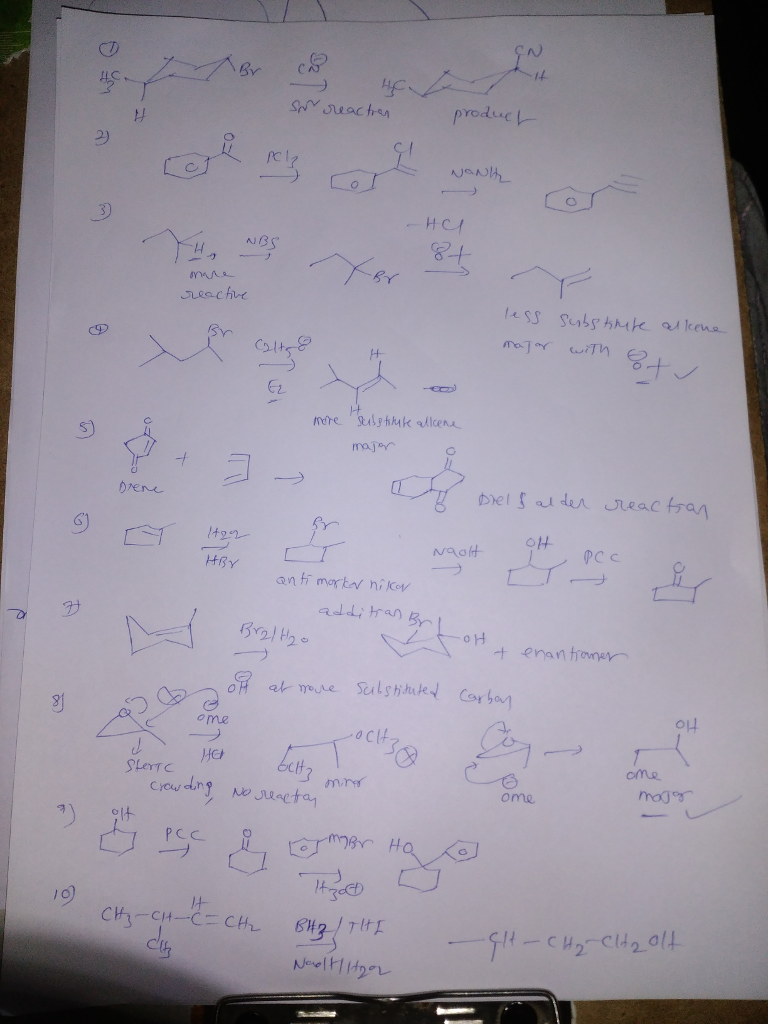 ①
H3C Br CN⊖ H3C CN H
H SN2 reaction product
2) O PCl3 Cl NaNH2
3) H, NBS Br -HCl
more reactive
less substitute alkene
major with ⊖O+ ✓
④ Br C2H5⊖ H
E2 H
more substitute alkene
major
5) O O + O O
Diene Diels alder reaction
6) H2O2 Br NaOH OH PCC O
HBr
anti markovnikov
addition
7) Br2/H2O Br OH + enantiomer
8) O ⊖OH at more substituted carbon
⊖OMe OCH3 O OH
HCl OCH3 ⊖OMe OMe
Steric crowding, No reaction minor major ✓
9) OH PCC O MgBr HO
H3O⊕
10) CH3-CH-C=CH2 H BH3/THF
CH3 NaOH/H2O2 CH-CH2-CH2OH